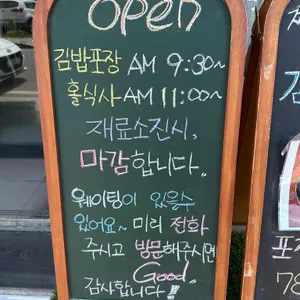 open
김밥포장 AM 9:30~
홀식사 AM 11:00~
재료소진시,
마감합니다..
웨이팅이 있을수
있어요~ 미리 전화
주시고 방문해주시면
Good.
감사합니다!
김
포장